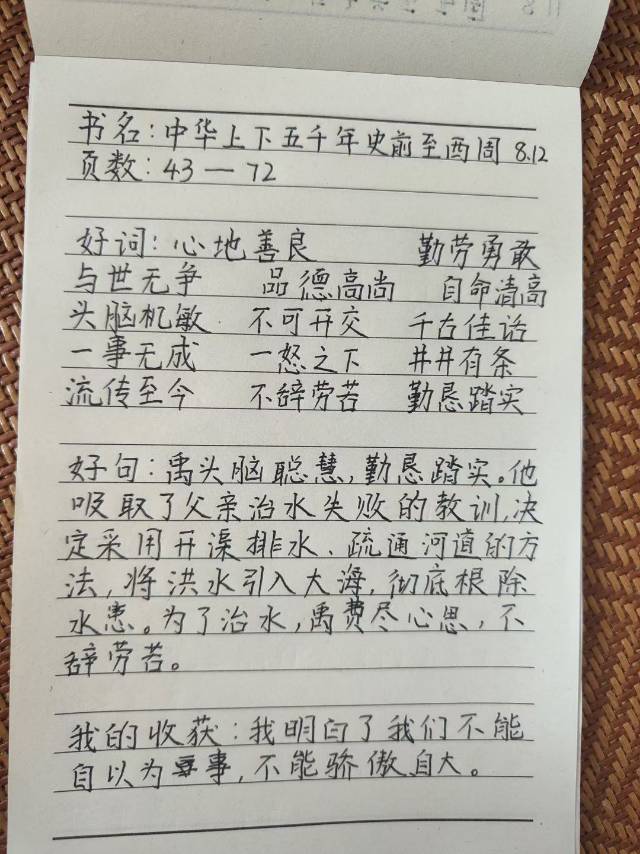 书名：中华上下五千年史前至西周 8.12
页数：43—72
好词：心地善良 勤劳勇敢
与世无争 品德高尚 自命清高
头脑机敏 不可开交 千古佳话
一事无成 一怒之下 井井有条
流传至今 不辞劳苦 勤恳踏实
好句：禹头脑聪慧，勤恳踏实。他
吸取了父亲治水失败的教训，决
定采用开渠排水、疏通河道的方
法，将洪水引入大海，彻底根除
水患。为了治水，禹费尽心思，不
辞劳苦。
我的收获：我明白了我们不能
自以为事，不能骄傲自大。